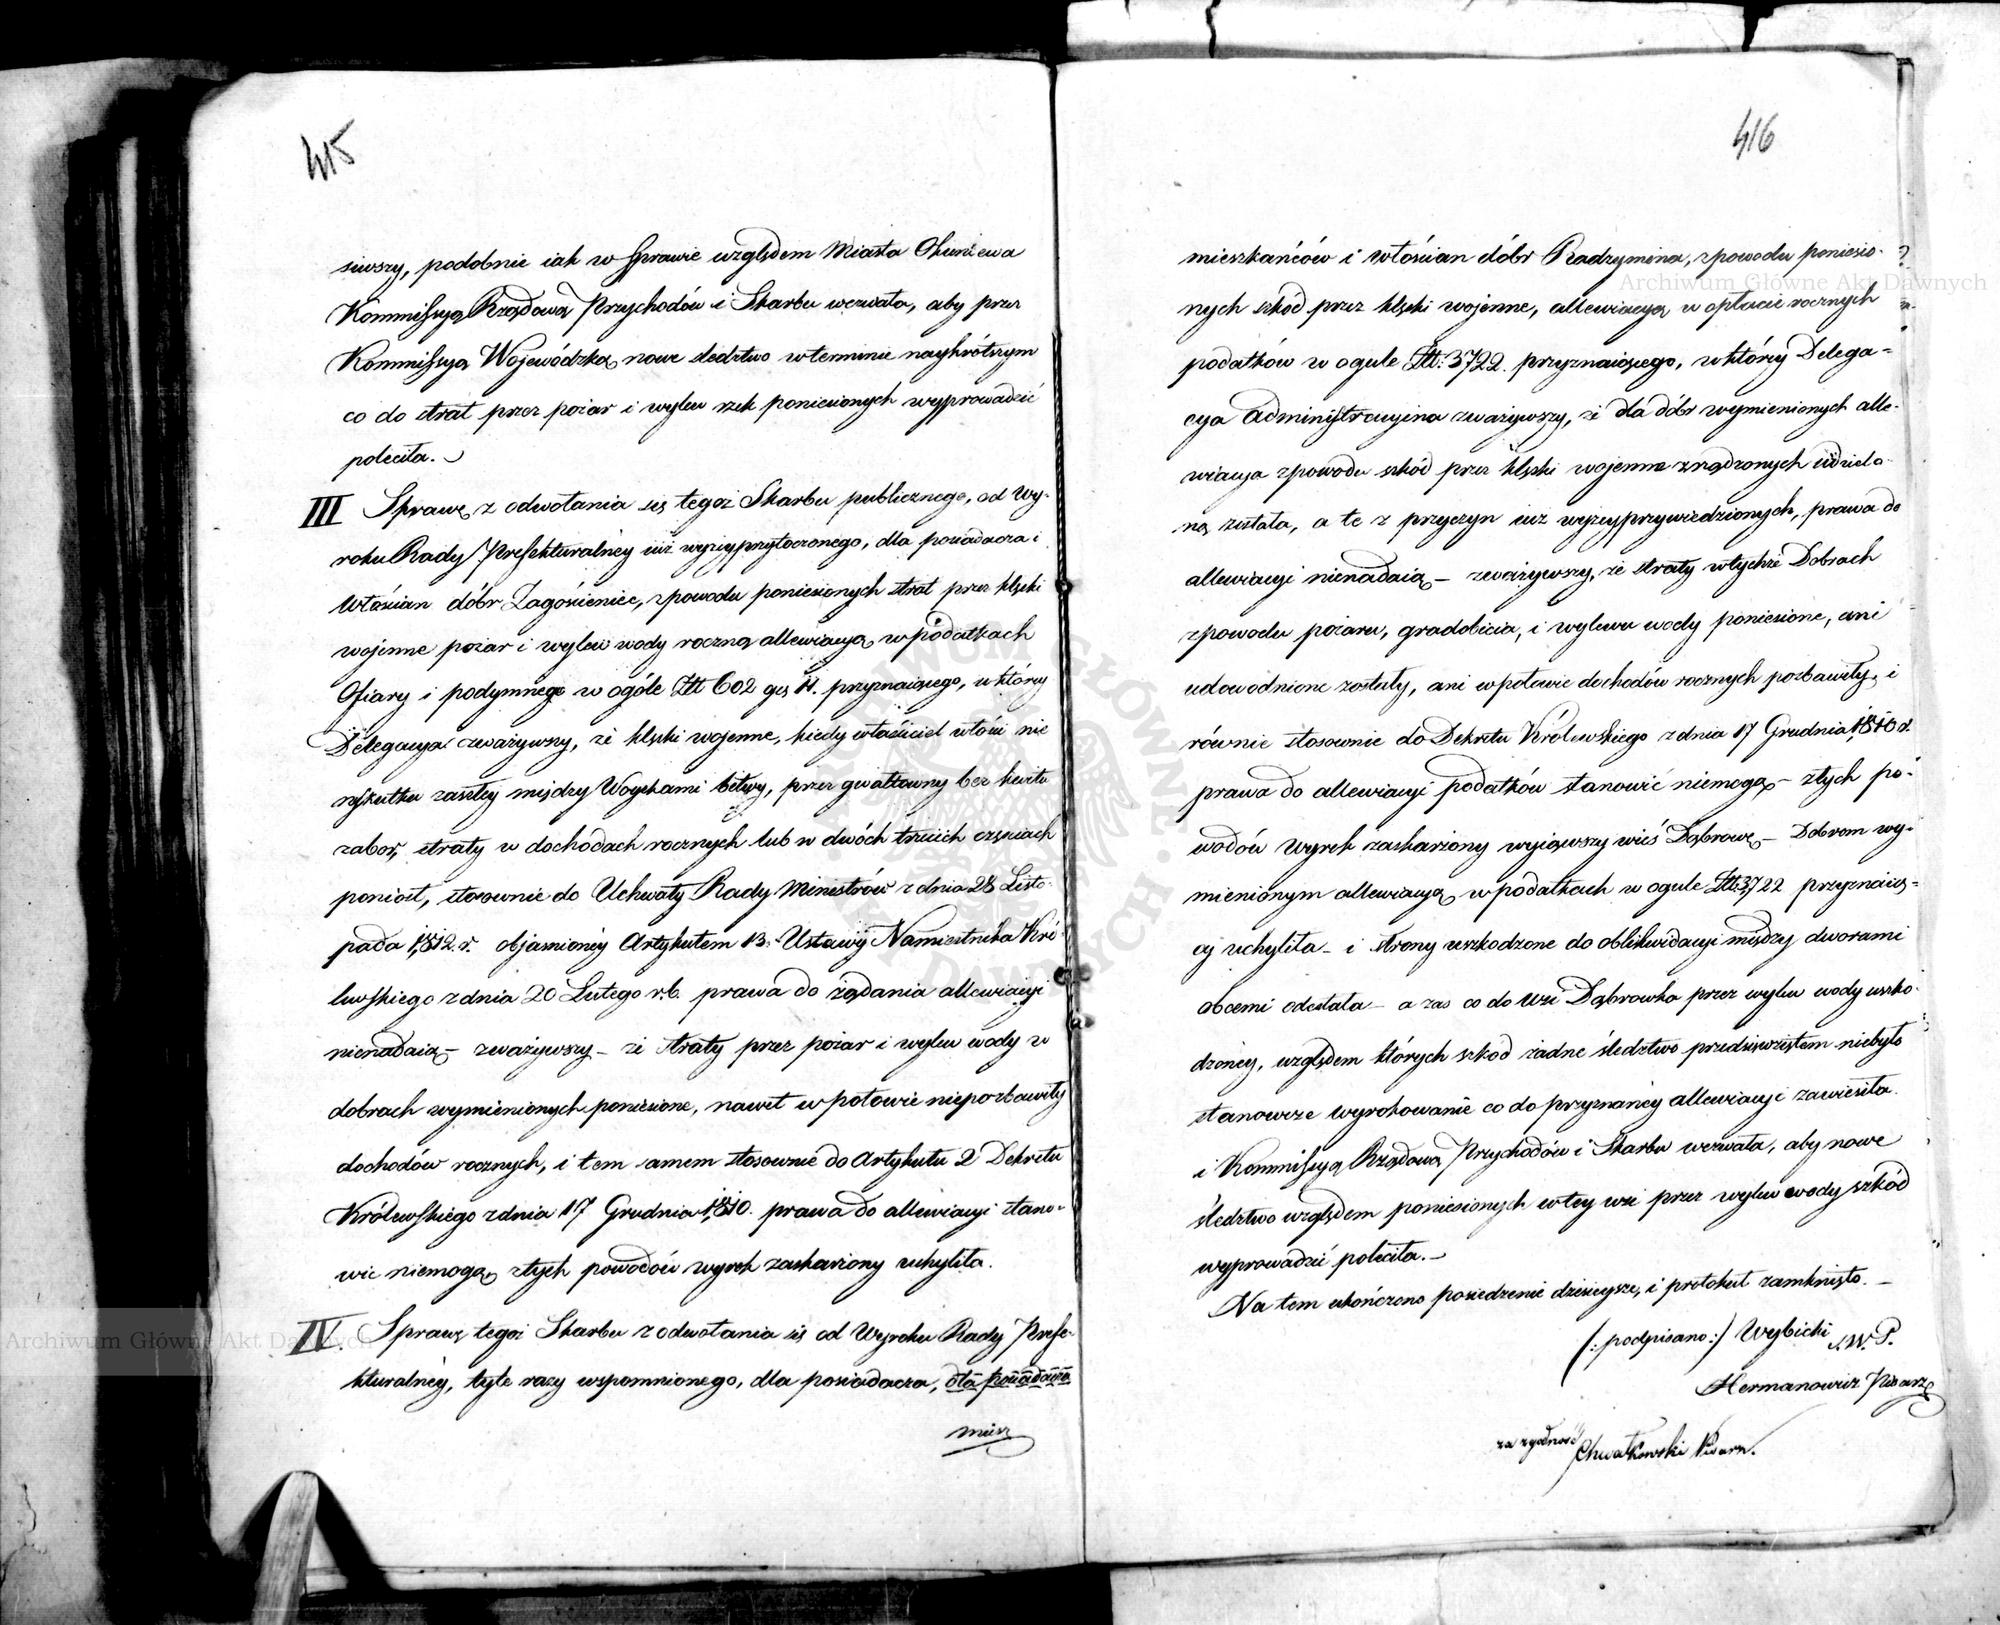 415
siwszy, podobnie iak w Sprawie względem Miasta Okuniewa
Kommissyą Rządową Przychodów i Skarbu wezwała, aby przez
Kommissyą Wojewódzką nowe sledztwo w terminie naykrótszym
co do strat przez pożar i wylew rzek poniesionych wyprowadzić
poleciła.
III Sprawę z odwołania się tegoż Skarbu publicznego, od Wy-
roku Rady Prefekturalnéy iuż wyżéyprzytoczonego, dla posiadacza i
Włościan dóbr Zagościeniec, z powodu poniesionych strat przez klęski
wojenne pożar i wylew wody roczną allewiacyą w podatkach
Ofiary i podymnego w ogóle Złt 602 gs 11. przyznaiącego, w któréy
Delegacya zważywszy, że klęski wojenne, kiedy właściciel włości nie
wskutku zaszłey między Woyskami bitwy, przez gwałtowny bez kwitu
zabor, straty w dochodach rocznych lub w dwóch trzecich częściach
poniosł, stosownie do Uchwały Rady Ministrów z dnia 28 Listo-
pada 1812. r. objasnionéy Artykułem 13. Ustawy Namiestnika Kró-
lewskiego z dnia 20 Lutego r. b. prawa do żądania allewiacyi
nienadaią – zważywszy – że straty przez pożar i wylew wody w
dobrach wymienionych poniesione, nawet w połowie niepozbawiły
dochodów rocznych, i tem samem stosownie do Artykułu 2 Dekretu
Królewskiego z dnia 17 Grudnia 1810. prawa do allewiacyi stano-
wic niemogą, z tych powodów wyrok zaskarżony uchyliła.
IV. Sprawę tegoż Skarbu z odwołania się od Wyroku Rady Prefe-
kturalnéy, tyle razy wspomnionego, dla posiadacza, dla posiadacza
miesz
416
mieszkańców i włościan dóbr Radzymina, z powodu poniesio-
nych szkód przez klęski wojenne, allewiacyą w opłacie rocznych
podatków w ogule Złt: 3722. przyznaiącego, w któréy Delega-
cya Administracyina zważywszy, że dla dóbr wymienionych alle-
wiacya z powodu szkód przez klęski wojenne zrządzonych udzielo-
ną została, a te z przyczyn iuż wyżéyprzywiedzionych, prawa do
allewiacyi nienadaią – zważywszy, że straty w tychże Dobrach
z powodu pożaru, gradobicia, i wylewu wody poniesione, ani
udowodnione zostały, ani w połowie dochodów rocznych pozbawiły, i
równie stosownie do Dekretu Królewskiego z dnia 17 Grudnia 1810 r.
prawa do allewiacyi podatków stanowić niemogą – z tych po-
wodów wyrok zaskarżony wyiąwszy wieś Dąbrowę – Dobrom wy-
mienionym allewiacyą w podatkach w ogule Złt 3722 przyznaią-
cy uchyliła – i strony uszkodzone do oblikwidacyi między dworami
obcemi odesłała – a zas co do wsi Dąbrowka przez wylew wody uszko-
dzonéy, względem których szkod żadne śledztwo przedsięwziętem niebyło
stanowcze wyrokowanie co do przyznanéy allewiacyi zawiesiła.
i Kommissyą Rządową Przychodów i Skarbu wezwała, aby nowe
śledztwo względem poniesionych w téy wsi przez wylew wody szkód
wyprowadzić poleciła. –
Na tem ukończono posiedzenie dzisieysze, i protokuł zamknięto. –
(: podpisano :) Wybicki S.W.P.
Hermanowicz Pisarz
za zgodność Chwałkowski Pisarz.
Archiwum Główne Akt Dawnych
Archiwum Główne Akt Dawnych